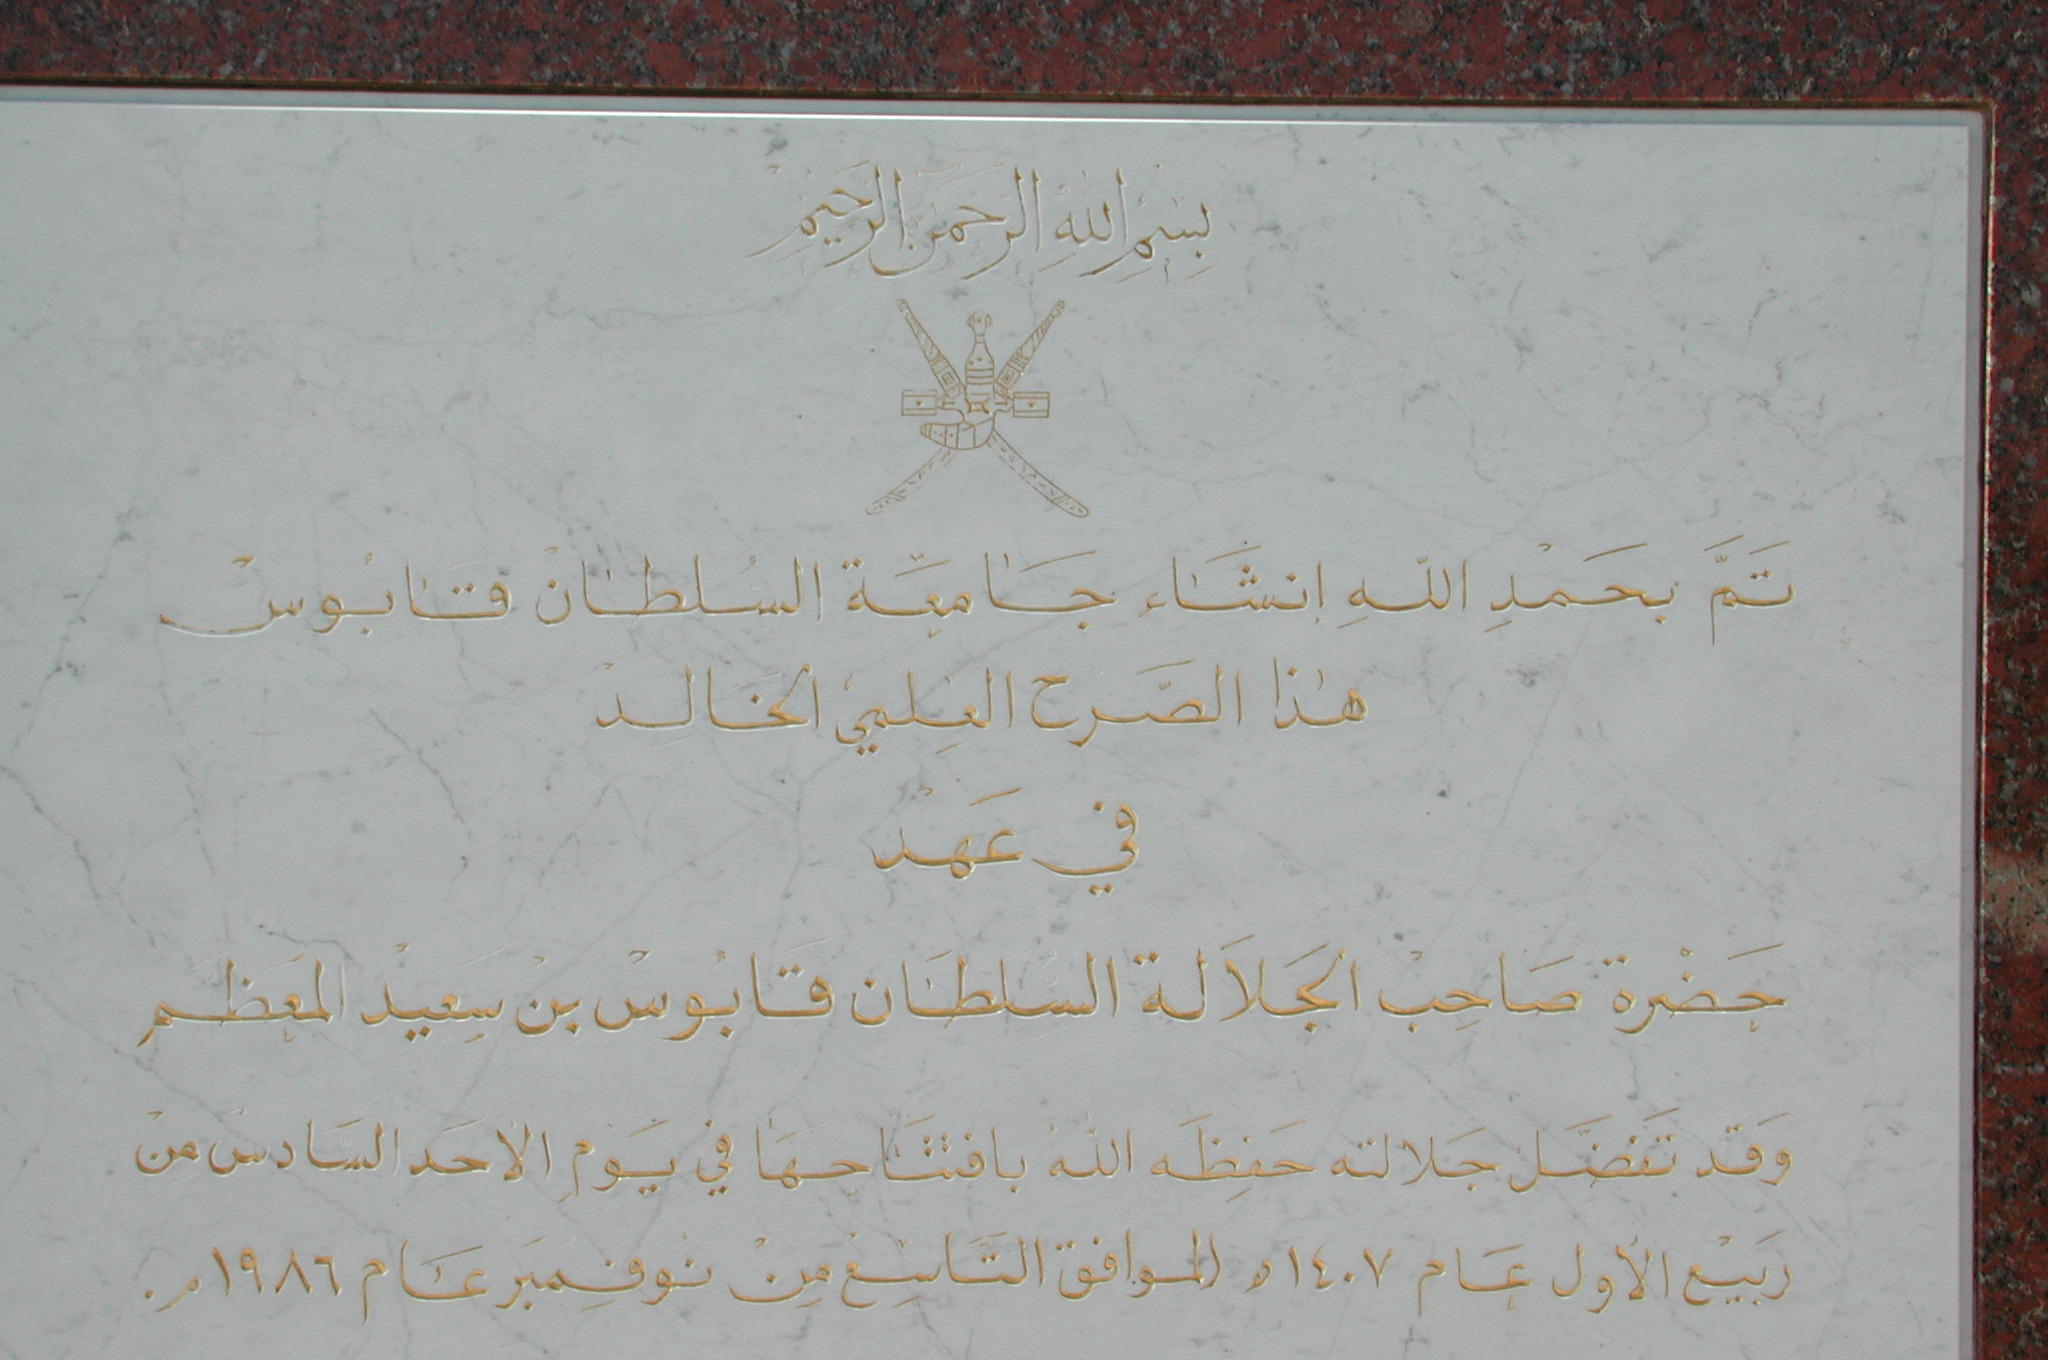 بِسْمِ اللَّهِ الرَّحْمَٰنِ الرَّحِيْمِ
تَمَّ بحَمْدِ اللّهِ إنشَاء جَامعَة السُّلطان قابُوسْ
هٰذا الصَّرح العِلميْ الخَالِد
في عَهْد
حَضْرة صَاحِبْ الجَلاَلة السُّلطَان قابُوسْ بنْ سَعيْد المعَظَم
وَقد تَفضَّل جَلالته حَفِظَه اللهُ بافتتَاحهَا في يَومِ الأحَد السَّادسْ منْ
رَبيْع الأول عَام ١٤٠٧ه الموافق التَّاسِعْ مِنْ نُوفِمبَر عَام ١٩٨٦م.